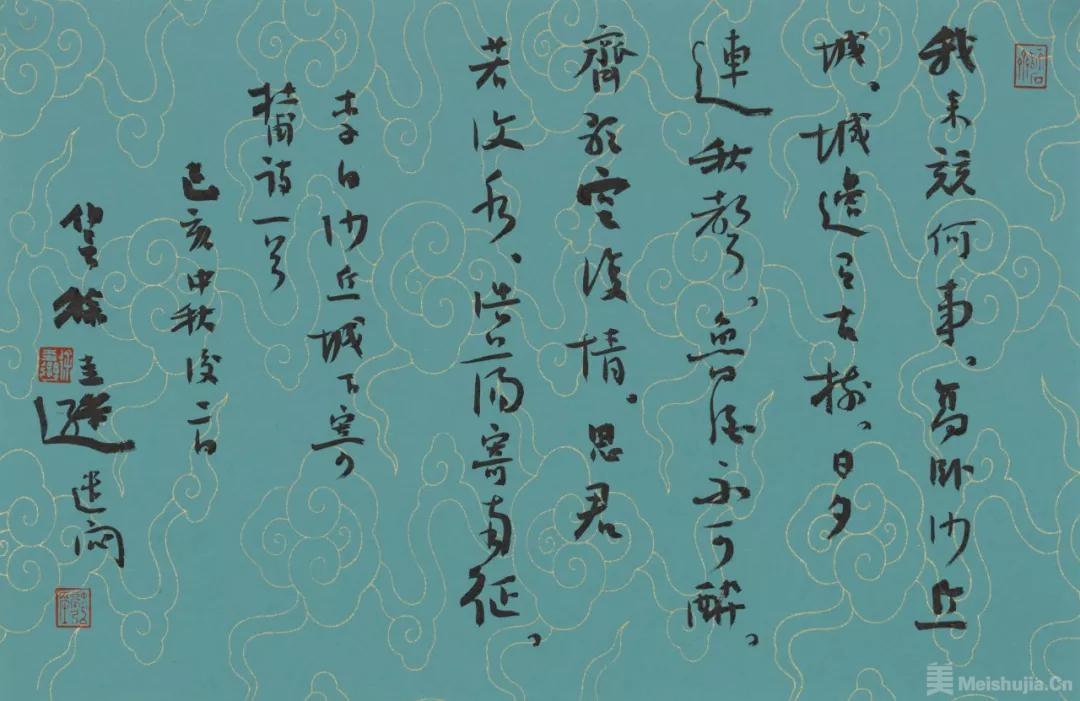 我来竟何事。高卧沙丘
城。城邊有古樹。日夕
連秋聲。魯酒不可醉。
齊歌空復情。思君
若汶水、浩蕩寄南征。
李白沙丘城下寄
杜甫詩一首
己亥中秋後二日
徐圭逊
美 Meishujia.Cn